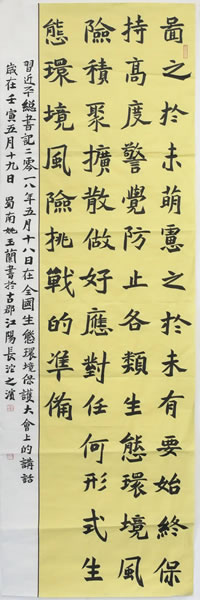 啚之於未萌慮之於未有要始終保
持高度警覺防止各類生態環境風
險積聚擴散做好應對任何形式生
態環境風險挑戰的準備
習近平總書記二零一八年五月十八日在全國生態環境保護大會上的講話
歲在壬寅五月十九日 蜀南姚玉蘭書於古郡江陽長之濱